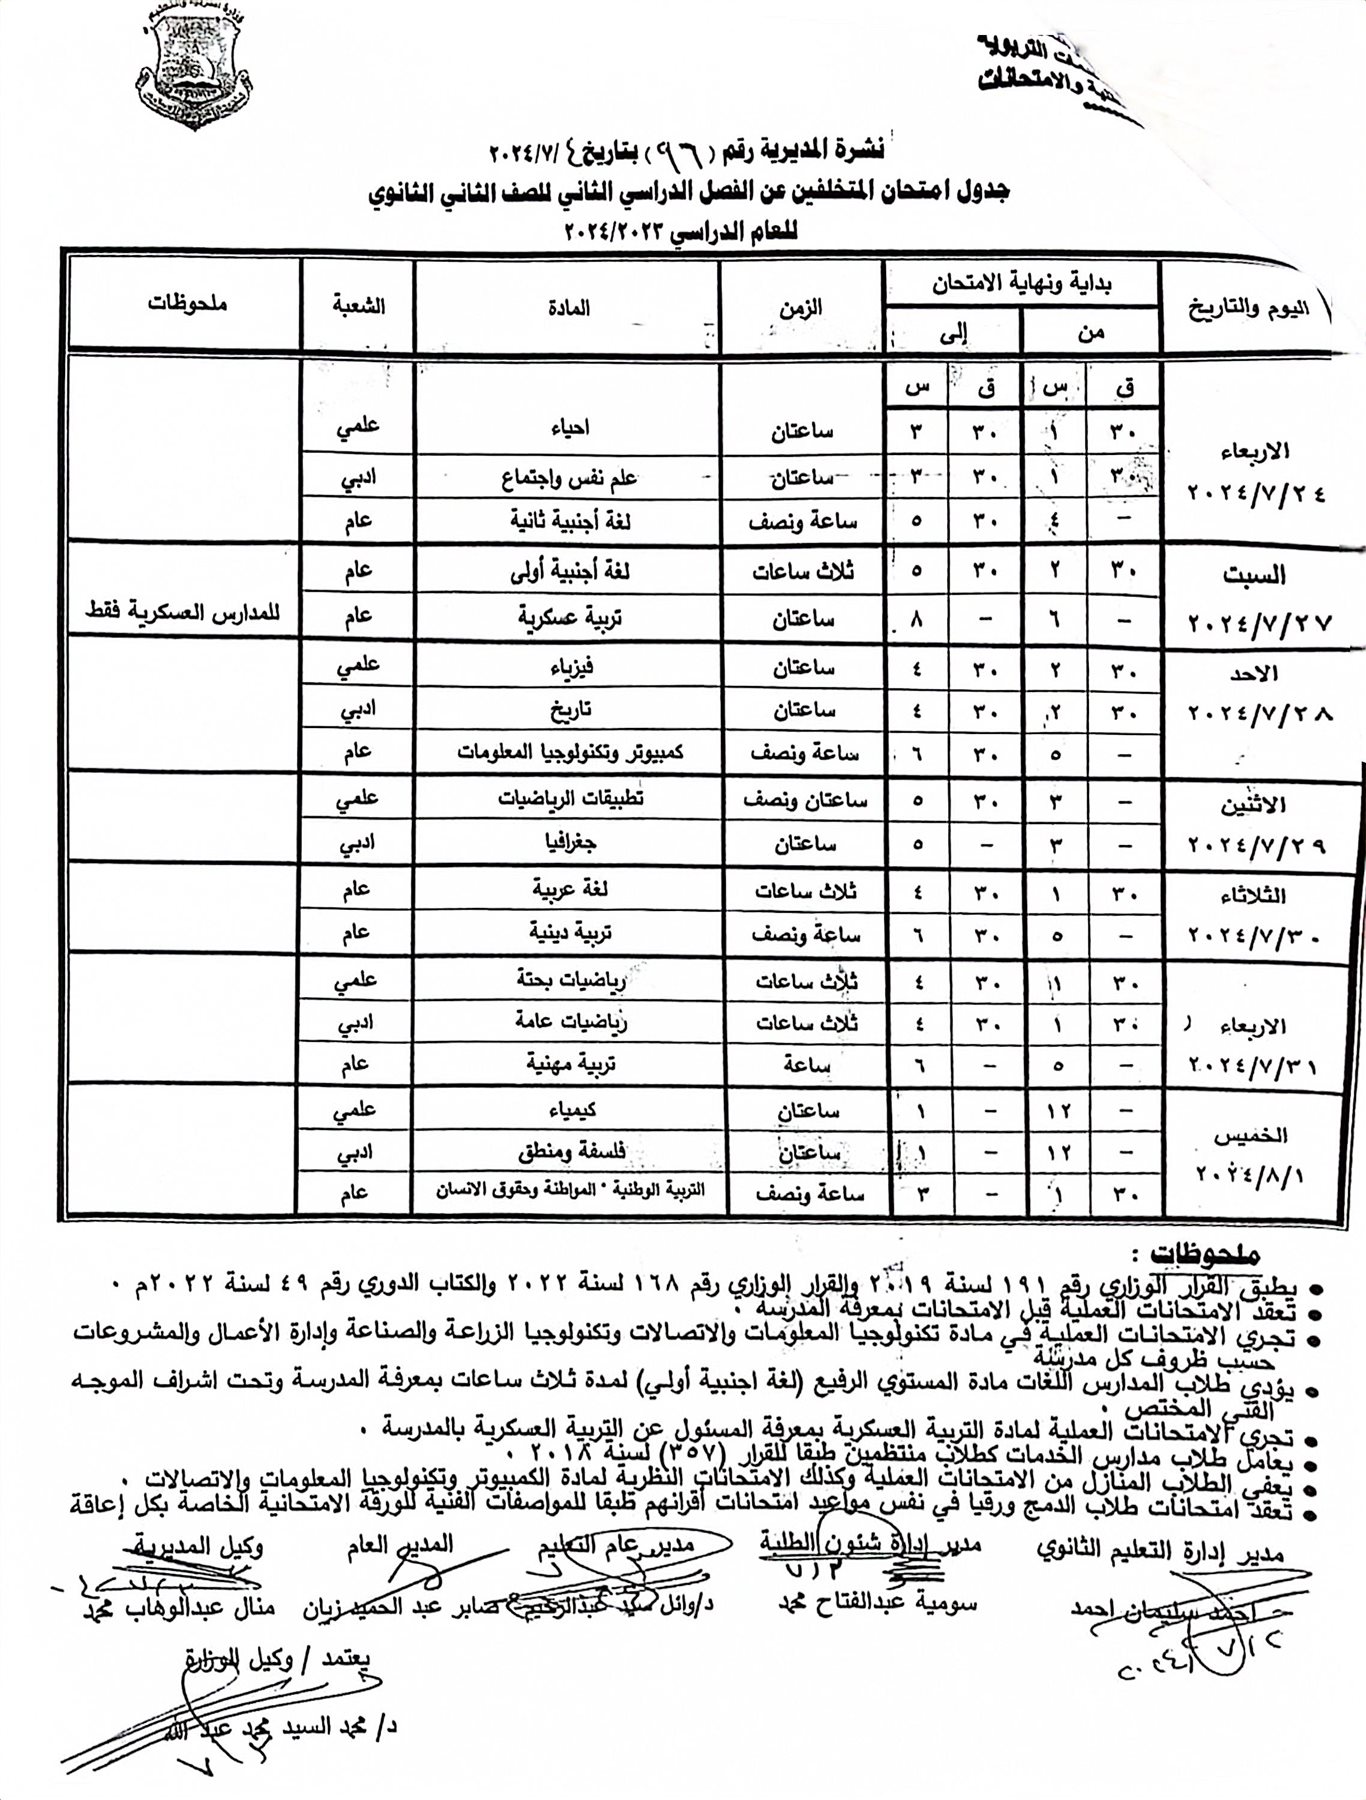 وزارة التربية والتعليم
التربوية
والامتحانات
نشرة المديرية رقم (٩٦) بتاريخ ٢٠٢٤/٧/٤
جدول امتحان المتخلفين عن الفصل الدراسي الثاني للصف الثاني الثانوي
للعام الدراسي ٢٠٢٤/٢٠٢٣
اليوم والتاريخ بداية ونهاية الامتحان الزمن المادة الشعبة ملحوظات
من إلى
ق س ق س
الاربعاء ٢٠٢٤/٧/٢٤
٣٠ ١ ٣٠ ٣ ساعتان احياء علمي
٣٠ ١ ٣٠ ٣ ساعتان علم نفس وإجتماع ادبي
– ٤ ٣٠ ٥ ساعة ونصف لغة أجنبية ثانية عام
السبت ٢٠٢٤/٧/٢٧
٣٠ ٢ ٣٠ ٥ ثلاث ساعات لغة أجنبية أولى عام
– ٦ – ٨ ساعتان تربية عسكرية عام للمدارس العسكرية فقط
الاحد ٢٠٢٤/٧/٢٨
٣٠ ٢ ٣٠ ٤ ساعتان فيزياء علمي
٣٠ ٢ ٣٠ ٤ ساعتان تاريخ ادبي
– ٥ ٣٠ ٦ ساعة ونصف كمبيوتر وتكنولوجيا المعلومات عام
الاثنين ٢٠٢٤/٧/٢٩
– ٣ ٣٠ ٥ ساعتان ونصف تطبيقات الرياضيات علمي
– ٣ – ٥ ساعتان جغرافيا ادبي
الثلاثاء ٢٠٢٤/٧/٣٠
٣٠ ١ ٣٠ ٤ ثلاث ساعات لغة عربية عام
– ٥ ٣٠ ٦ ساعة ونصف تربية دينية عام
الاربعاء ٢٠٢٤/٧/٣١
٣٠ ١ ٣٠ ٤ ثلاث ساعات رياضيات بحتة علمي
٣٠ ١ ٣٠ ٤ ثلاث ساعات رياضيات عامة ادبي
– ٥ – ٦ ساعة تربية مهنية عام
الخميس ٢٠٢٤/٨/١
– ١٢ – ١ ساعتان كيمياء علمي
– ١٢ – ١ ساعتان فلسفة ومنطق ادبي
٣٠ ١ – ٣ ساعة ونصف التربية الوطنية " المواطنة وحقوق الانسان عام
ملحوظات :
• يطبق القرار الوزاري رقم ١٩١ لسنة ٢٠١٩ والقرار الوزاري رقم ١٦٨ لسنة ٢٠٢٢ والكتاب الدوري رقم ٤٩ لسنة ٢٠٢٢م .
• تعقد الامتحانات العملية قبل الامتحانات بمعرفة المدرسة .
• تجري الامتحانات العملية في مادة تكنولوجيا المعلومات والاتصالات وتكنولوجيا الزراعة والصناعة وإدارة الأعمال والمشروعات
حسب ظروف كل مدرسة
• يؤدي طلاب المدارس اللغات مادة المستوي الرفيع (لغة اجنبية أولي) لمدة ثلاث ساعات بمعرفة المدرسة وتحت اشراف الموجه
الفني المختص .
• تجري الامتحانات العملية لمادة التربية العسكرية بمعرفة المسئول عن التربية العسكرية بالمدرسة .
• يعامل طلاب مدارس الخدمات كطلاب منتظمين طبقا للقرار (٣٥٧) لسنة ٢٠١٨ .
• يعفي الطلاب المنازل من الامتحانات العملية وكذلك الامتحانات النظرية لمادة الكمبيوتر وتكنولوجيا المعلومات والاتصالات .
• تعقد امتحانات طلاب الدمج ورقيا في نفس مواعيد امتحانات أقرانهم طبقا للمواصفات الفنية للورقة الامتحانية الخاصة بكل إعاقة
مدير إدارة التعليم الثانوي مدير إدارة شئون الطلبة مدير عام التعليم المدير العام وكيل المديرية
احمد سليمان احمد سومية عبدالفتاح محمد د/وائل سيد عبدالرحيم صابر عبد الحميد زيان منال عبدالوهاب محمد
يعتمد / وكيل الوزارة
د/ محمد السيد محمد عبد الله